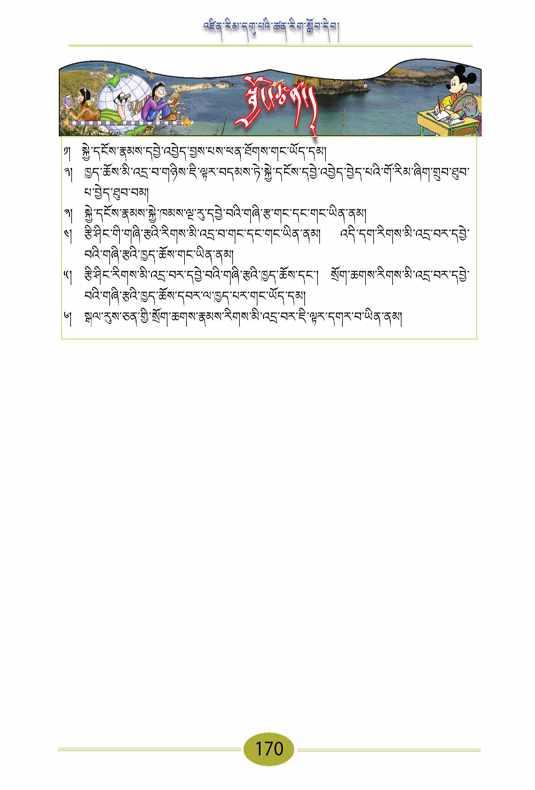 འཛིན་རིམ་དགུ་པའི་ཚན་རིག་སློབ་དེབ།
སྦྱོང་ཚན།
༡། སྐྱེ་དངོས་རྣམས་དབྱེ་འབྱེད་བྱས་པས་ཕན་ཐོགས་གང་ཡོད་དམ།
༢། ཁྱད་ཆོས་མི་འདྲ་བ་གཉིས་ཇི་ལྟར་བདམས་ཏེ་སྐྱེ་དངོས་དབྱེ་འབྱེད་བྱེད་པའི་གོ་རིམ་ཞིག་གྲུབ་ཐུབ་
པ་བྱེད་ཐུབ་བམ།
༣། སྐྱེ་དངོས་རྣམས་སྐྱེ་ཁམས་ལྔ་རུ་དབྱེ་བའི་གཞི་རྩ་གང་དང་གང་ཡིན་ནམ།
༤། རྩི་ཤིང་གི་གཞི་རྩའི་རིགས་མི་འདྲ་བ་གང་དང་གང་ཡིན་ནམ། འདི་དག་རིགས་མི་འདྲ་བར་དབྱེ་
བའི་གཞི་རྩའི་ཁྱད་ཆོས་གང་ཡིན་ནམ།
༥། རྩི་ཤིང་རིགས་མི་འདྲ་བར་དབྱེ་བའི་གཞི་རྩའི་ཁྱད་ཆོས་དང་། སྲོག་ཆགས་རིགས་མི་འདྲ་བར་དབྱེ་
བའི་གཞི་རྩའི་ཁྱད་ཆོས་དབར་ལ་ཁྱད་པར་གང་ཡོད་དམ།
༦། སྒལ་རུས་ཅན་གྱི་སྲོག་ཆགས་རྣམས་རིགས་མི་འདྲ་བར་ཇི་ལྟར་དགར་བ་ཡིན་ནམ།
170